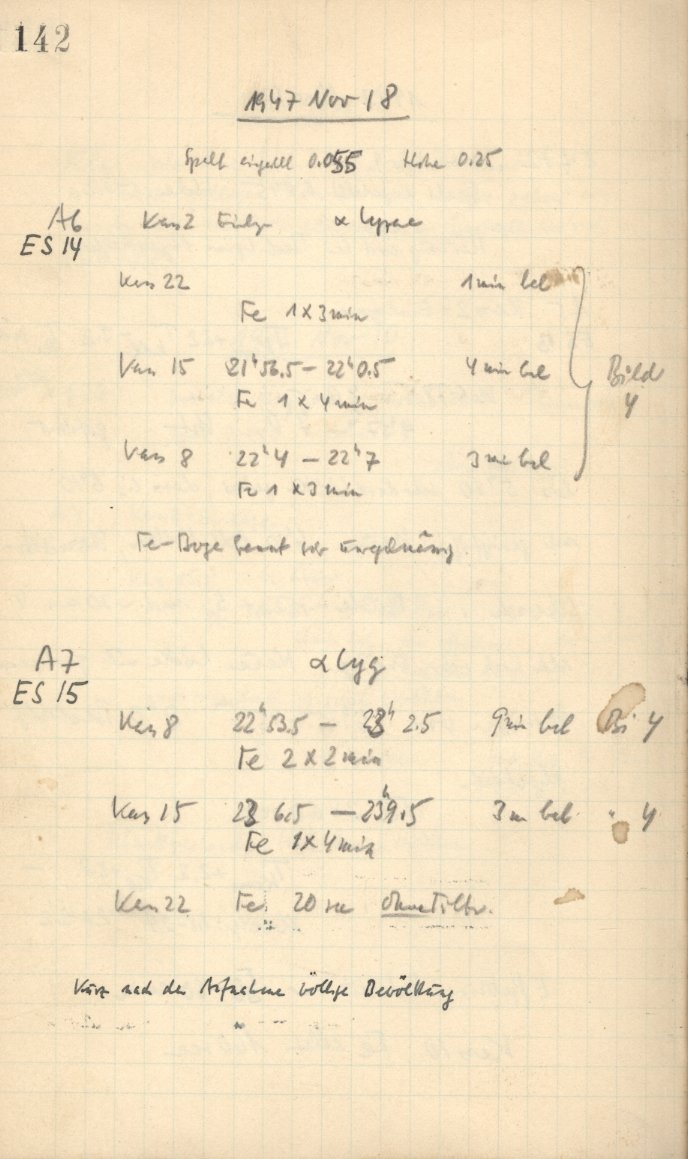 142
1947 Nov 18
Spalt eingestellt 0.055 Höhe 0.25
A6 Kas 2 α Lyrae
ES 14
Kas 22 1 min bel
Fe 1 x 3 min
Kas 15 21h 56.5 – 22h 0.5 4 min bel Bild
Fe 1 x 4 min 4
Kas 8 22h 4 – 22h 7 3 min bel
Fe 1 x 3 min
Fe-Boge brennt sehr
A7 α Cyg
ES 15
Kas 8 22h 53.5 – 23h 2.5 9 min bel Bi 4
Fe 2 x 2 min
Kas 15 23 6.5 – 23h 9.5 3 m bel " 4
Fe 1 x 4 min
Kas 22 Fe 20 sec ohne Filter.
Kurz nach der Aufnahme völlige Bewölkung